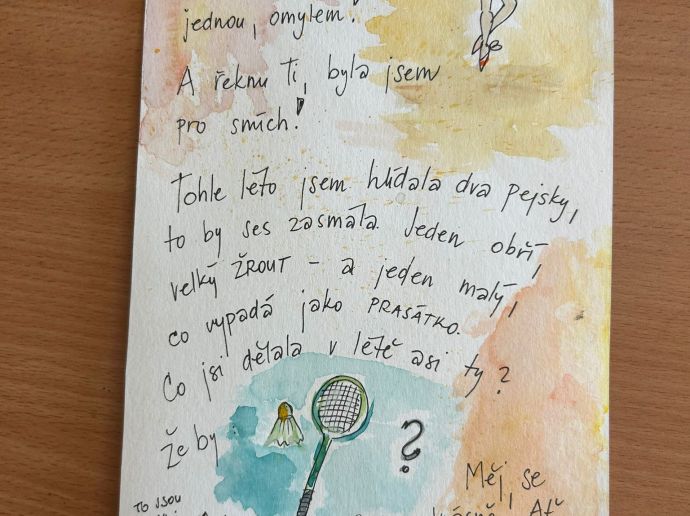 jednou, omylem.
A řeknu Ti, byla jsem
pro smích!
Tohle léto jsem hlídala dva pejsky,
to by ses zasmála. Jeden obří,
velký ŽROUT – a jeden malý,
co vypadá jako PRASÁTKO.
Co jsi dělala v létě asi ty?
Že by ?
Měj se
TO JSOU
krásně. Ať